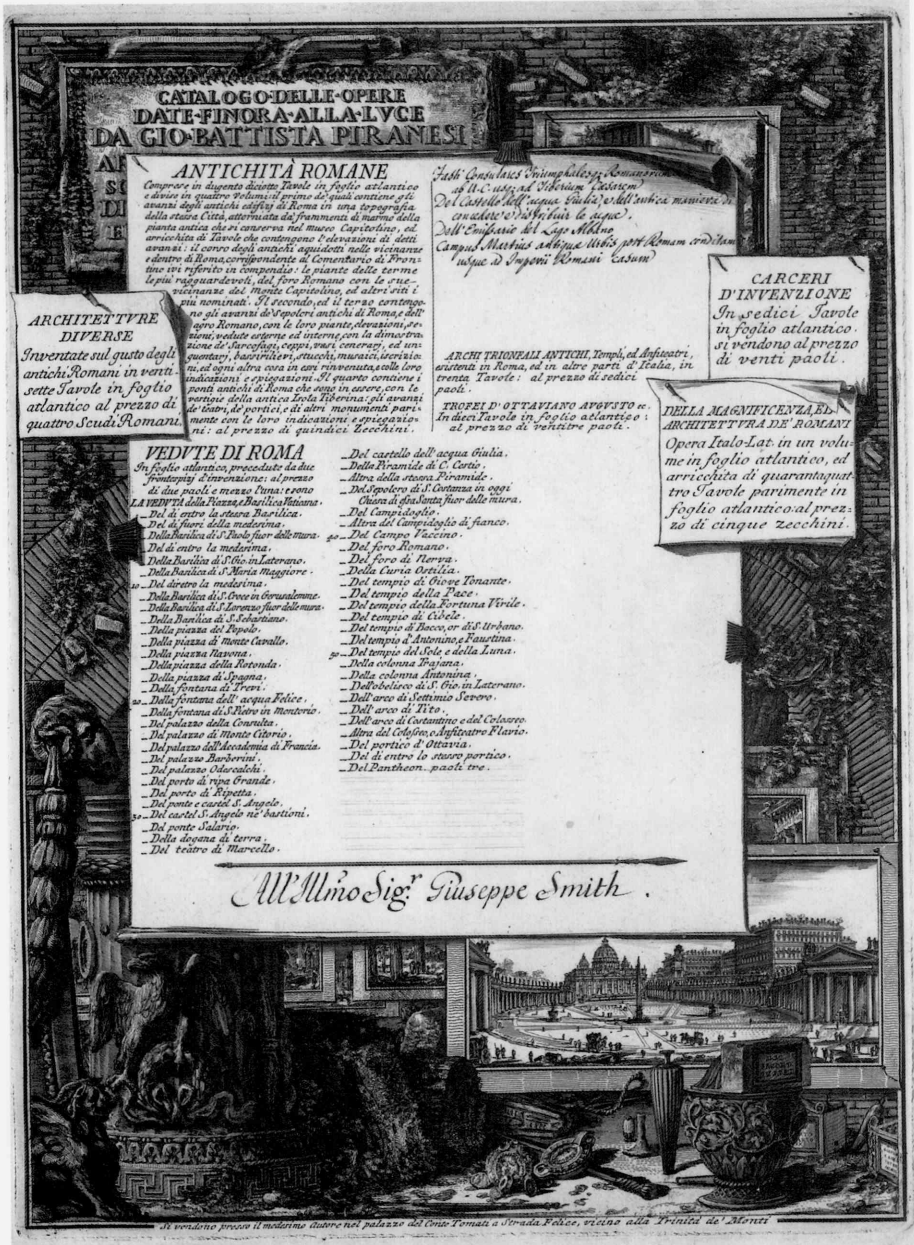 CATALOGO·DELLE·OPERE
DATE·FINORA·ALLA·LVCE
DA GIO·BATTISTA PIRANESI
ANTICHITÀ ROMANE
Comprese in dugento diciotto Tavole in foglio atlantico
e divise in quattro volumi: il primo de' quali contiene gli
avanzi degli antichi edifizj di Roma in una topografia
della stessa Città, attorniata da' frammenti di marmo della
pianta antica che si conserva nel museo Capitolino, ed
arricchita di Tavole che contengono l'elevazioni di detti
avanzi: il corso degli antichi aquidotti nelle vicinanze
e dentro di Roma, corrispondente al Comentario di Fron=
tino ivi riferito in compendio: le piante delle terme
le più ragguardevoli, del foro Romano con le sue
vicinanze del Monte Capitolino, ed altri siti i
più nominati. Il secondo, ed il terzo contengo=
no gli avanzi de' sepolcri antichi di Roma, e dell'
agro Romano, con le loro piante, elevazioni, se=
zioni, vedute esterne ed interne, con la dimostra=
zione de' Sarcofagi, ceppi, vasi cenerarj, ed un=
guentarj, bassirilievi, stucchi, musaici, iscrizio=
ni, ed ogni altra cosa in essi rinvenuta, e colle loro
indicazioni e spiegazioni. Il quarto contiene i
ponti antichi di Roma che sono in essere, con le
vestigie della antica Isola Tiberina: gli avanzi
de' teatri, de' portici, e di altri monumenti pari=
mente con le loro indicazioni e spiegazio=
ni: al prezzo di quindici Zecchini.
Fasti Consulares Triumphalesq; Romanorum
ab U.C. usq; ad Tiberium Caesarem
Del Castello dell'acqua Giulia, e dell'antica maniera di
concedere e distribuir le acque.
Dell'Emissario del Lago Albano
Campus Martius antiquae Urbis post Romam conditam
usque ad Imperii Romani casum
ARCHI TRIONFALI ANTICHI, Templi, ed Anfiteatri,
esistenti in Roma, ed in altre parti d'Italia, in
trenta Tavole: al prezzo di sedici
paoli.
TROFEI D'OTTAVIANO AVGVSTO &c.
In dieci Tavole in foglio atlantico:
al prezzo di ventitre paoli.
ARCHITETTVRE
DIVERSE
Inventate sul gusto degli
antichi Romani in venti=
sette Tavole in foglio
atlantico al prezzo di
quattro Scudi Romani.
CARCERI
D'INVENZIONE
In sedici Tavole
in foglio atlantico.
si vendono al prezzo
di venti paoli.
DELLA MAGNIFICENZA, ED
ARCHITETTVRA DE' ROMANI
Opera Italo-Lat. in un volu=
me in foglio atlantico, ed
arricchita di quarantaquat=
tro Tavole parimente in
foglio atlantico: al prez=
zo di cinque zecchini.
VEDVTE DI ROMA
In foglio atlantico, precedute da due
frontespizj d'invenzione: al prezzo
di due paoli e mezzo l'una: e sono
LA VEDVTA della Piazza, e Basilica Vaticana.
_Del di entro la stessa Basilica.
_Del di fuori della medesima.
_Della Basilica di S. Paolo fuor delle mura.
_Del di entro la medesima.
_Della Basilica di S. Gio. in Laterano.
_Della Basilica di S. Maria Maggiore.
10_Del dietro la medesima.
_Della Basilica di S. Croce in Gerusalemme.
_Della Basilica di S. Lorenzo fuor delle mura.
_Della Basilica di S. Sebastiano.
_Della piazza del Popolo.
_Della piazza di Monte Cavallo.
_Della piazza Navona.
_Della piazza della Rotonda.
_Della piazza di Spagna.
_Della fontana di Trevi.
20_Della fontana dell'acqua Felice.
_Della fontana di S. Pietro in Montorio.
_Del palazzo della Consulta.
_Del palazzo di Monte Citorio.
_Del palazzo dell'Accademia di Francia.
_Del palazzo Barberini.
_Del palazzo Odescalchi.
_Del porto di ripa Grande.
_Del porto di Ripetta.
_Del ponte e castel S. Angelo.
30_Del castel S. Angelo ne' bastioni.
_Del ponte Salario.
_Della dogana di terra.
_Del teatro di Marcello.
_Del castello dell'acqua Giulia.
_Della Piramide di C. Cestio.
_Altra della stessa Piramide.
_Del Sepolcro di S. Costanza in oggi
Chiesa di essa Santa fuor delle mura.
_Del Campidoglio.
_Altra del Campidoglio di fianco.
40_Del Campo Vaccino.
_Del foro Romano.
_Del foro di Nerva.
_Della Curia Ostilia.
_Del tempio di Giove Tonante.
_Del tempio della Pace.
_Del tempio della Fortuna Virile.
_Del tempio di Cibele.
_Del tempio di Bacco, or di S. Urbano.
_Del tempio d'Antonino, e Faustina.
50_Del tempio del Sole e della Luna.
_Della colonna Trajana.
_Della colonna Antonina.
_Dell'obelisco di S. Gio. in Laterano.
_Dell'arco di Settimio Severo.
_Dell'arco di Tito.
_Dell'arco di Costantino e del Colosseo.
_Altra del Colosseo, o Anfiteatro Flavio.
_Del portico d'Ottavia.
_Del di entro lo stesso portico.
_Del Pantheon.. paoli tre.
All'Illmo Sigr. Giuseppe Smith.
Si vendono presso il medesimo autore nel palazzo del Conte Tomati a Strada Felice, vicino alla Trinità de' Monti